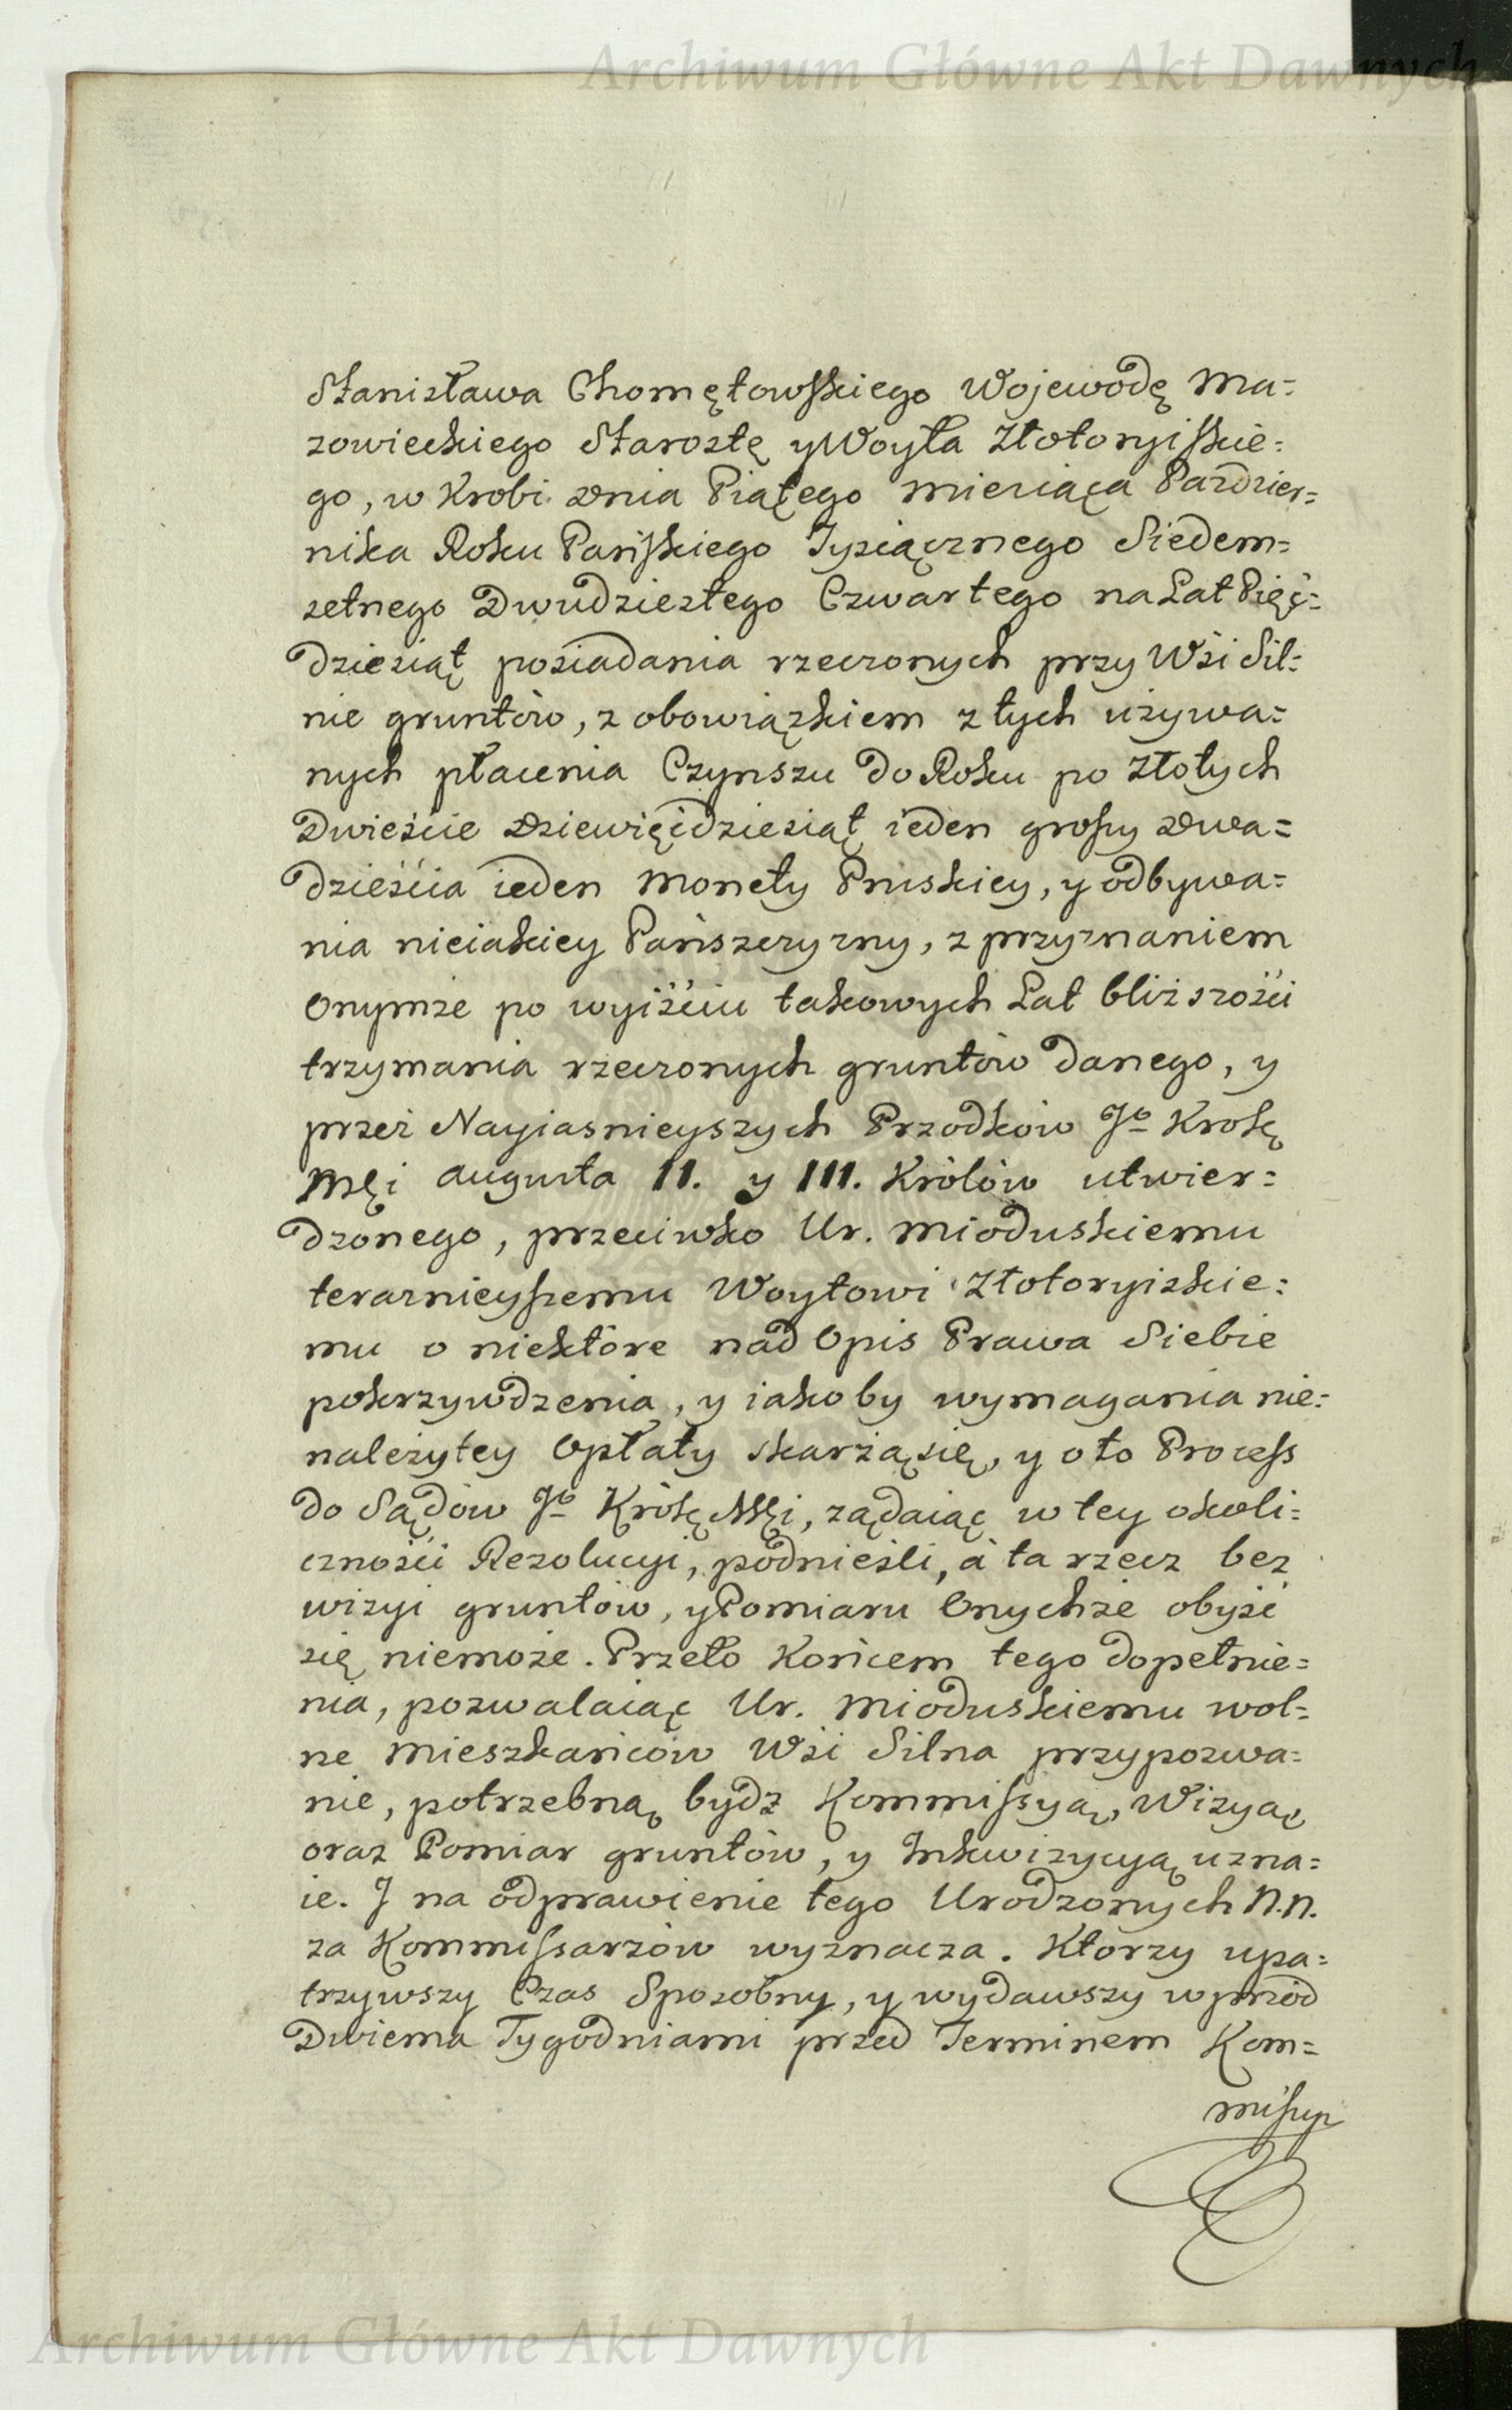 Archiwum Główne Akt Dawnych
Stanisława Chomętowskiego Wojewodę Ma=
zowieckiego Starostę y Woyta Złotoryiskie=
go, w Krobi dnia Piątego Miesiąca Paździer=
nika Roku Pańskiego Tysiącznego Siedem=
setnego Dwudziestego Czwartego na Lat Pięć=
dziesiąt posiadania rzeczonych przy Wsi Sil=
nie gruntów, z obowiązkiem z tych używa=
nych płacenia Czynszu do Roku po Złotych
Dwieście Dziewięćdziesiąt ieden groszy dwa=
dzieścia ieden Monety Pruskiey, y odbywa=
nia nieiakiey Pańszczyzny, z przyznaniem
Onymże po wyiściu takowych Lat bliższości
trzymania rzeczonych gruntów danego, y
przez Nayiasnieyszych Przodków Jo Krolę
Mći Augusta II. y III. Królów utwier=
dzonego, przeciwko Ur. Mioduskiemu
teraznieyszemu Woytowi Złotoryiskie=
mu o niektóre nad Opis Prawa Siebie
pokrzywdzenia, y iakoby wymagania nie=
należytey Opłaty skarżą się, y o to Process
do Sądów Jo Królę Mći, żądaiąc w tey okoli=
czności Rezolucyi, podnieśli, a ta rzecz bez
wizyi gruntów, y Pomiaru Onychże obyść
się niemoże. Przeto Końcem tego dopełnie=
nia, pozwalaiąc Ur. Mioduskiemu wol=
ne Mieszkańców Wsi Silna przypozwa=
nie, potrzebną bydź Kommissyą, Wizyą
oraz Pomiar gruntów, y Inkwizycyą uzna=
ie. J na odprawienie tego Urodzonych N.N.
za Kommissarzów wyznacza. Którzy upa=
trzywszy Czas Sposobny, y wydawszy wprzód
Dwiema Tygodniami przed Terminem Kom=
missyi
Archiwum Główne Akt Dawnych